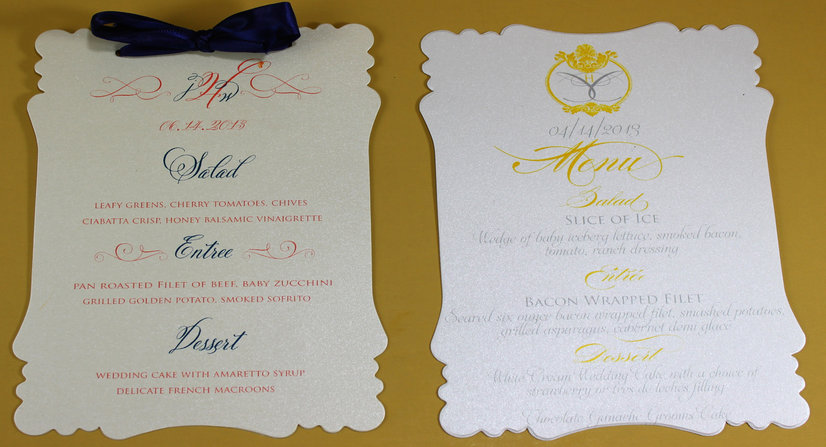 JHW
06.14.2013
Salad
LEAFY GREENS, CHERRY TOMATOES, CHIVES
CIABATTA CRISP, HONEY BALSAMIC VINAIGRETTE
Entree
PAN ROASTED FILET OF BEEF, BABY ZUCCHINI
GRILLED GOLDEN POTATO, SMOKED SOFRITO
Dessert
WEDDING CAKE WITH AMARETTO SYRUP
DELICATE FRENCH MACROONS
04/14/2013
Menu
Salad
SLICE OF ICE
Wedge of baby iceberg lettuce, smoked bacon,
tomato, ranch dressing
Entrée
BACON WRAPPED FILET
Seared six ounce bacon wrapped filet, smashed potatoes,
grilled asparagus, cabernet demi glace
Dessert
White Cream Wedding Cake with a choice of
strawberry or tres de leches filling
Chocolate Ganache Grooms Cake